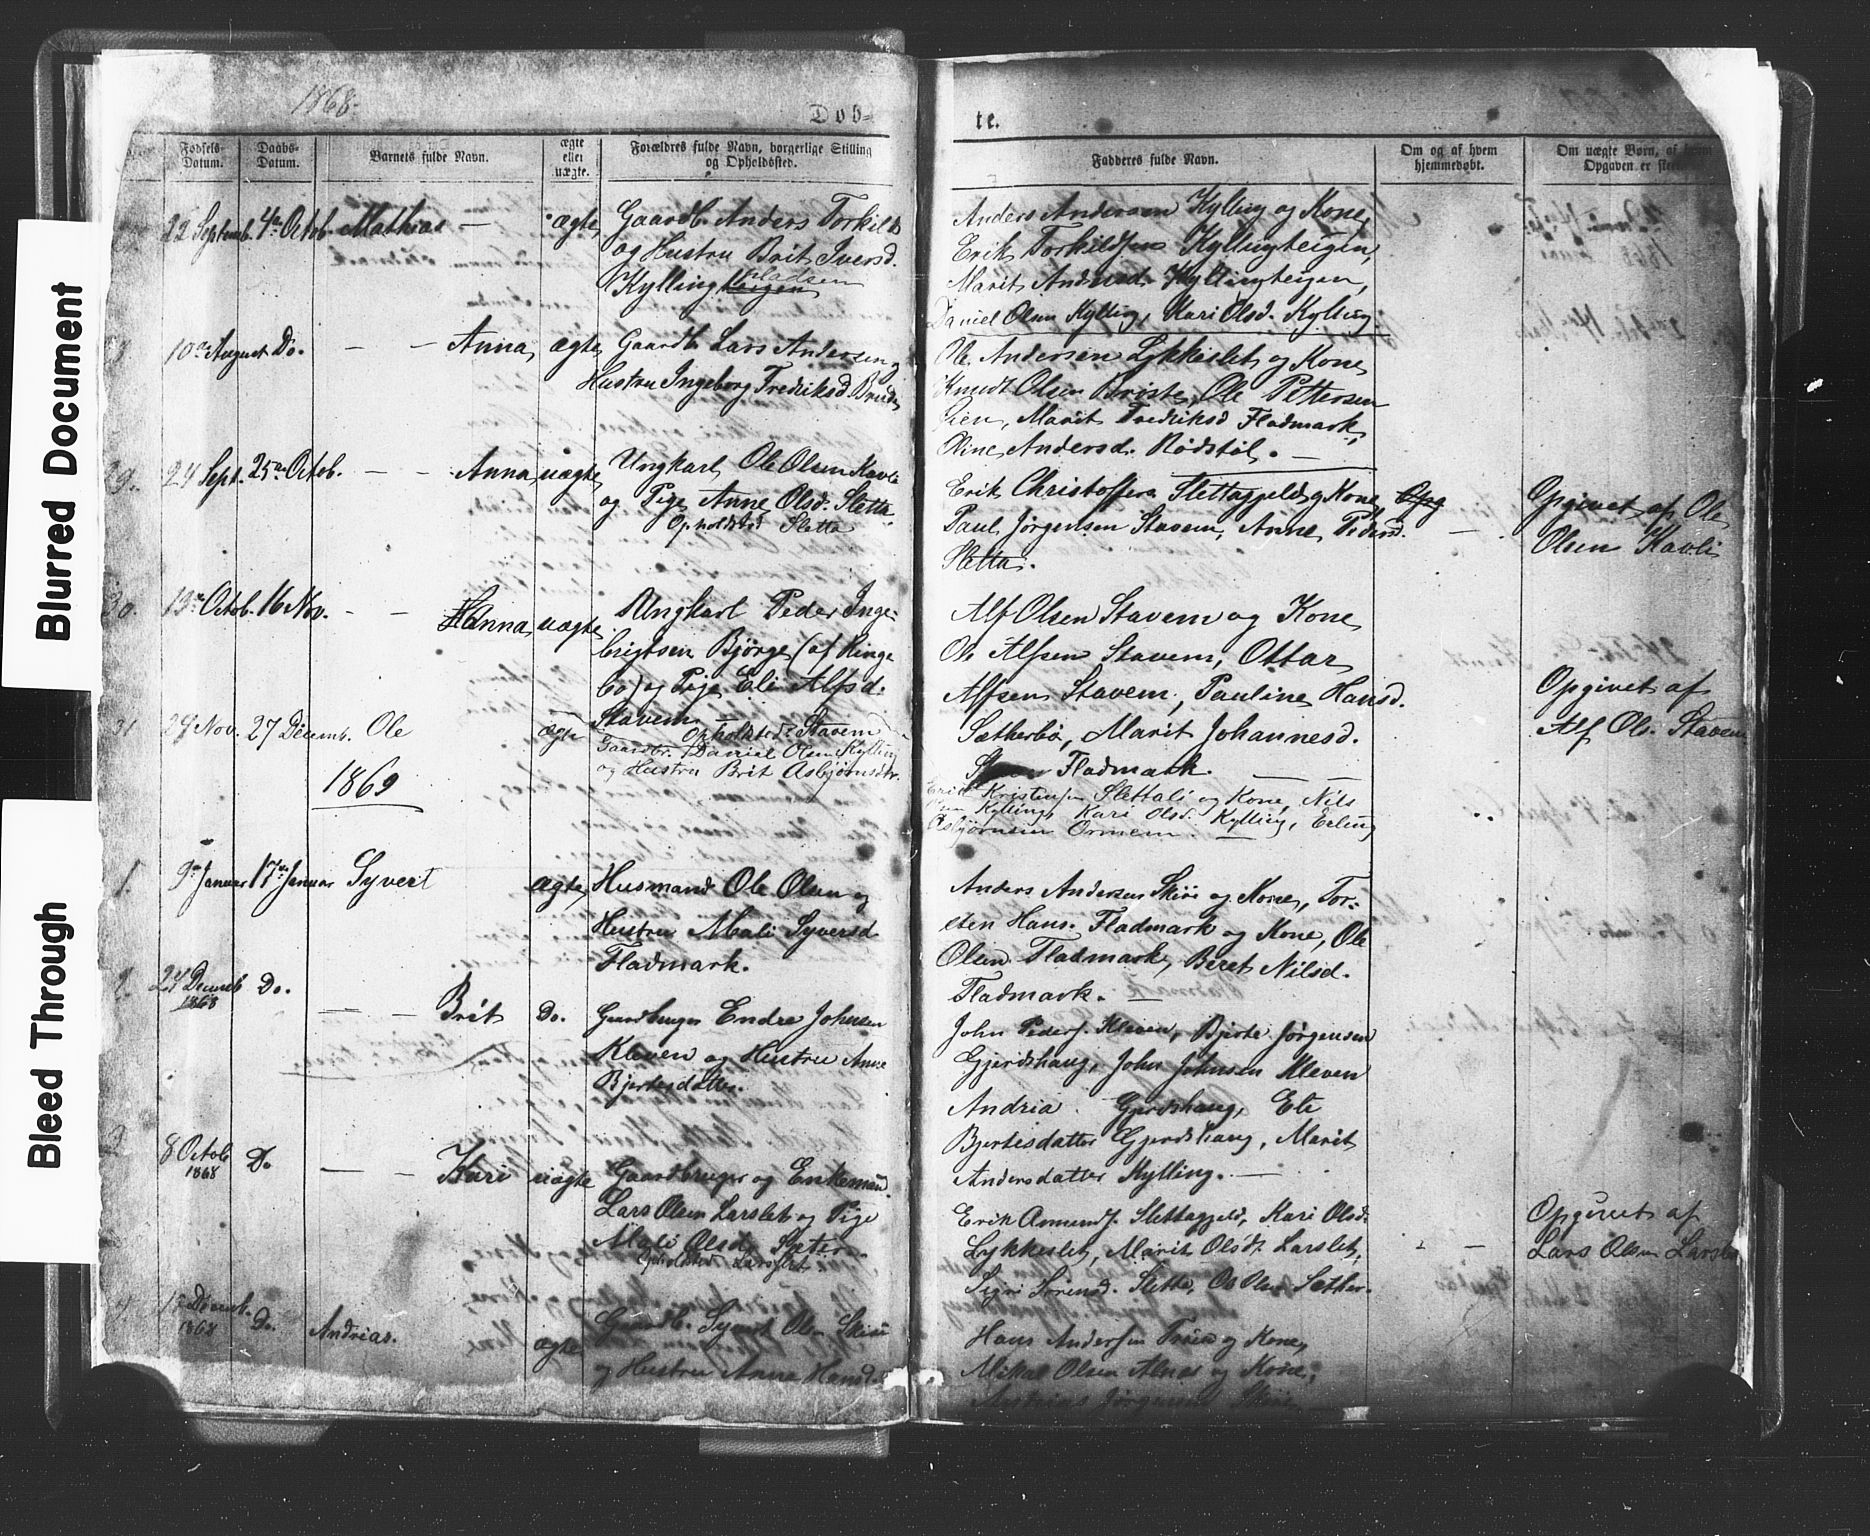 Blurred Document
Bleed Through
1868.
Døb-
te.
Fødsels-Datum.
Daabs-Datum.
Barnets fulde Navn.
ægte eller uægte.
Forældres fulde Navn, borgerlige Stilling og Opholdssted.
Fadderes fulde Navn.
Om og af hvem hjemmedøbt.
Om uægte Børn, af hvem Opgaven er
22 Septemb. 4de Octob. Mathias — ægte
Gaardb. Anders Torkilds
og Hustru Brit Iversd.
Kylling pladsen
Anders Andersen Kylling og Kone,
Erik Torkildsen Kyllingteigen,
Marit Andersd. Kyllingteigen,
Daniel Olsen Kylling, Kari Olsd. Kylling
10de August Do. — — Anna, ægte
Gaardb. Lars Andersen og
Hustru Ingeborg Fredriksd
Ole Andersen Lykkeslet og Kone,
Knudt Olsen Brøste, Ole Pettersen
Øien, Marit Fredriksd Fladmark,
Oline Andersd. Rødstøl. —
29. 24 Sept. 25de Octob. — — Anna, uægte
Ungkarl Ole Olsen Kavli
og Pige Anne Olsd. Sletta
Opholdsted Sletta
Erik Christoffers Slettagjeld og Kone,
Paul Jørgensen Stavem, Anne Pedersd.
Sletta.
Opg
—
Opgivet af Ole
Olsen Kavli
30. 13de Octob. 16 Nov. — — Hanna, uægte
Ungkarl Peder Inge-
brigtsen Bjørge (af Ringe
bo) og Pige Eli Alfsd.
Stavem
Opholdsted: Stavem
Alf Olsen Stavem og Kone
Ole Alfsen Stavem, Ottar
Alfsen Stavem, Pauline Hansd.
Sætherbø, Marit Johannesd.
Fladmark. — —
Opgivet af
Alf Ols. Stavem
31 29 Nov. 27 Decemb. Ole ægte
Gaardbr. Daniel Olsen Kylling
og Hustru Brit Asbjørnsdtr.
Erik Kristensen Slettali og Kone, Nils
Olsen Kylling, Kari Olsd. Kylling, Erling
Asbjørnsen Ormem. —
1869
1. 9de Januar 17de Januar Syvert ægte
Husmand Ole Olsen og
Hustru Mali Syversd
Fladmark.
Anders Andersen Skiri og Kone, Tor-
sten Hans. Fladmark og Kone, Ole
Olsen Fladmark, Beret Nilsd.
Fladmark. —
2. 24 Decemb 1868 Do. — — Brit Do.
Gaardbruger Endre Johnsen
Kleven og Hustru Anne
Bjertesdatter.
John Peders. Kleven, Bjerte Jørgensen
Gjerdshaug, John Johnsen Kleven
Andria Gjerdshaug, Ele
Bjertesdatter Gjerdshaug, Marit
Andersdatter Kylling. —
3. 8 Octob 1868 Do — — Kari uægte
Gaardbruger og Enkemand
Lars Olsen Larslet og Pige
Mali Olsd. Sæter
Opholdsted Larslet.
Erik Amunds. Slettagjeld, Kari Olsd.
Lykkeslet, Marit Olsdt. Larslet,
Sigri Sørensd. Sletta, Ole Olsen Sæther.
Opgivet af
Lars Olsen
4. Decemb. 1868 Do. Andrias. ægte
Gaardb. Syvert Olsen Skiri
og Hustru Anne Hansd.
Hans Andersen og Kone,
Mikal Olsen Alnæs og Kone,
Andrias Jørgensen Skiri